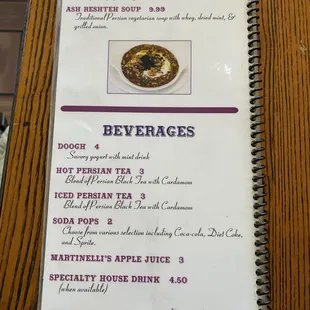 ASH RESHTEH SOUP 9.99
Traditional Persian vegetarian soup with whey, dried mint, &
grilled onion.
BEVERAGES
DOOGH 4
Savory yogurt with mint drink
HOT PERSIAN TEA 3
Blend of Persian Black Tea with Cardamom
ICED PERSIAN TEA 3
Blend of Persian Black Tea with Cardamom
SODA POPS 2
Choose from various selection including Coca-cola, Diet Coke,
and Sprite.
MARTINELLI'S APPLE JUICE 3
SPECIALTY HOUSE DRINK 4.50
(when available)